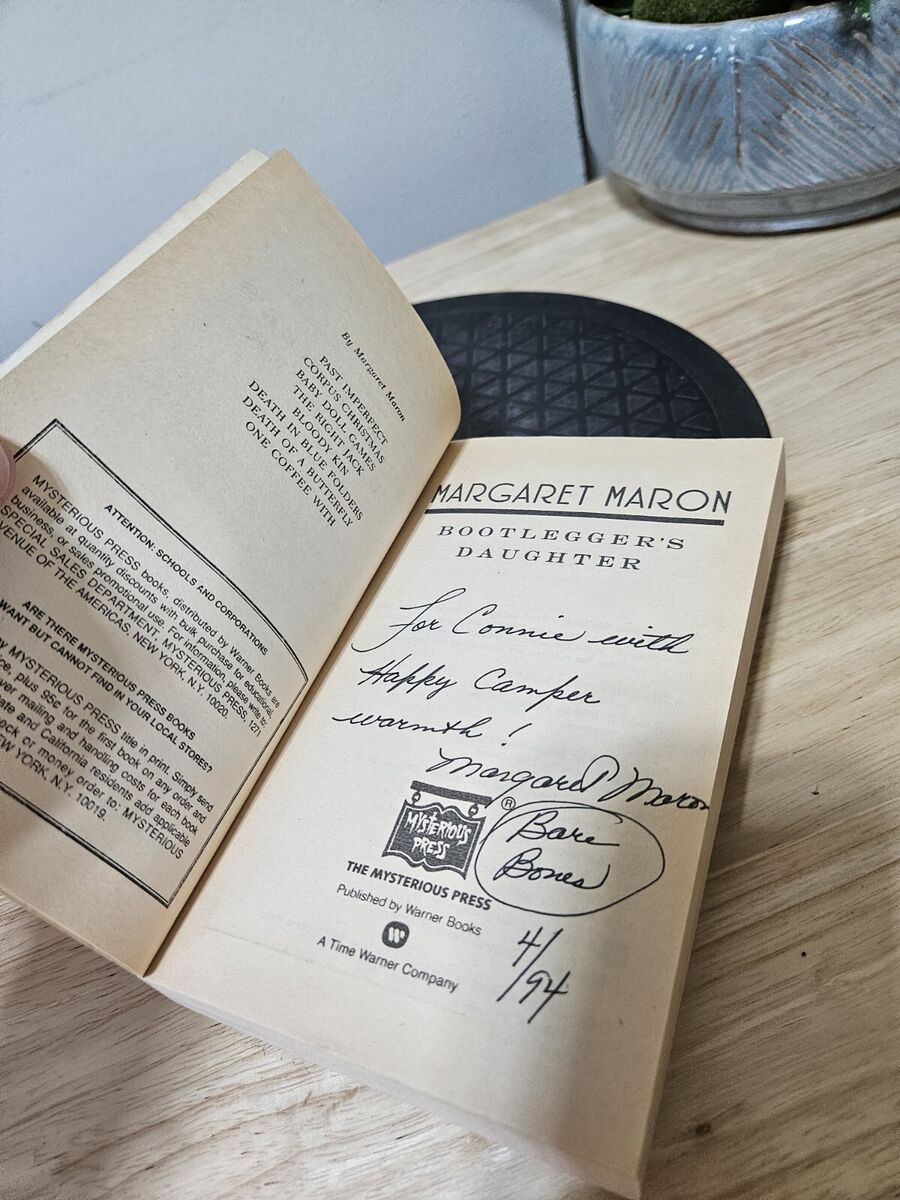 By Margaret Maron
PAST IMPERFECT
CORPUS CHRISTMAS
BABY DOLL GAMES
THE RIGHT JACK
BLOODY KIN
DEATH IN BLUE FOLDERS
DEATH OF A BUTTERFLY
ONE COFFEE WITH
ATTENTION: SCHOOLS AND CORPORATIONS
MYSTERIOUS PRESS books, distributed by Warner Books are
available at quantity discounts with bulk purchase for educational,
business, or sales promotional use. For information, please write to:
SPECIAL SALES DEPARTMENT, MYSTERIOUS PRESS, 1271
AVENUE OF THE AMERICAS, NEW YORK, N.Y. 10020.
ARE THERE MYSTERIOUS PRESS BOOKS
WANT BUT CANNOT FIND IN YOUR LOCAL STORES?
MYSTERIOUS PRESS title in print. Simply send
plus 95¢ for the first book on any order and
mailing and handling costs for each book
and California residents add applicable
or money order to: MYSTERIOUS
YORK, N.Y. 10019.
MARGARET MARON
BOOTLEGGER'S
DAUGHTER
For Connie with
Happy Camper
warmth!
Margaret Maron
MYSTERIOUS
PRESS
®
Bare
Bones
THE MYSTERIOUS PRESS
Published by Warner Books
W
A Time Warner Company
4/94